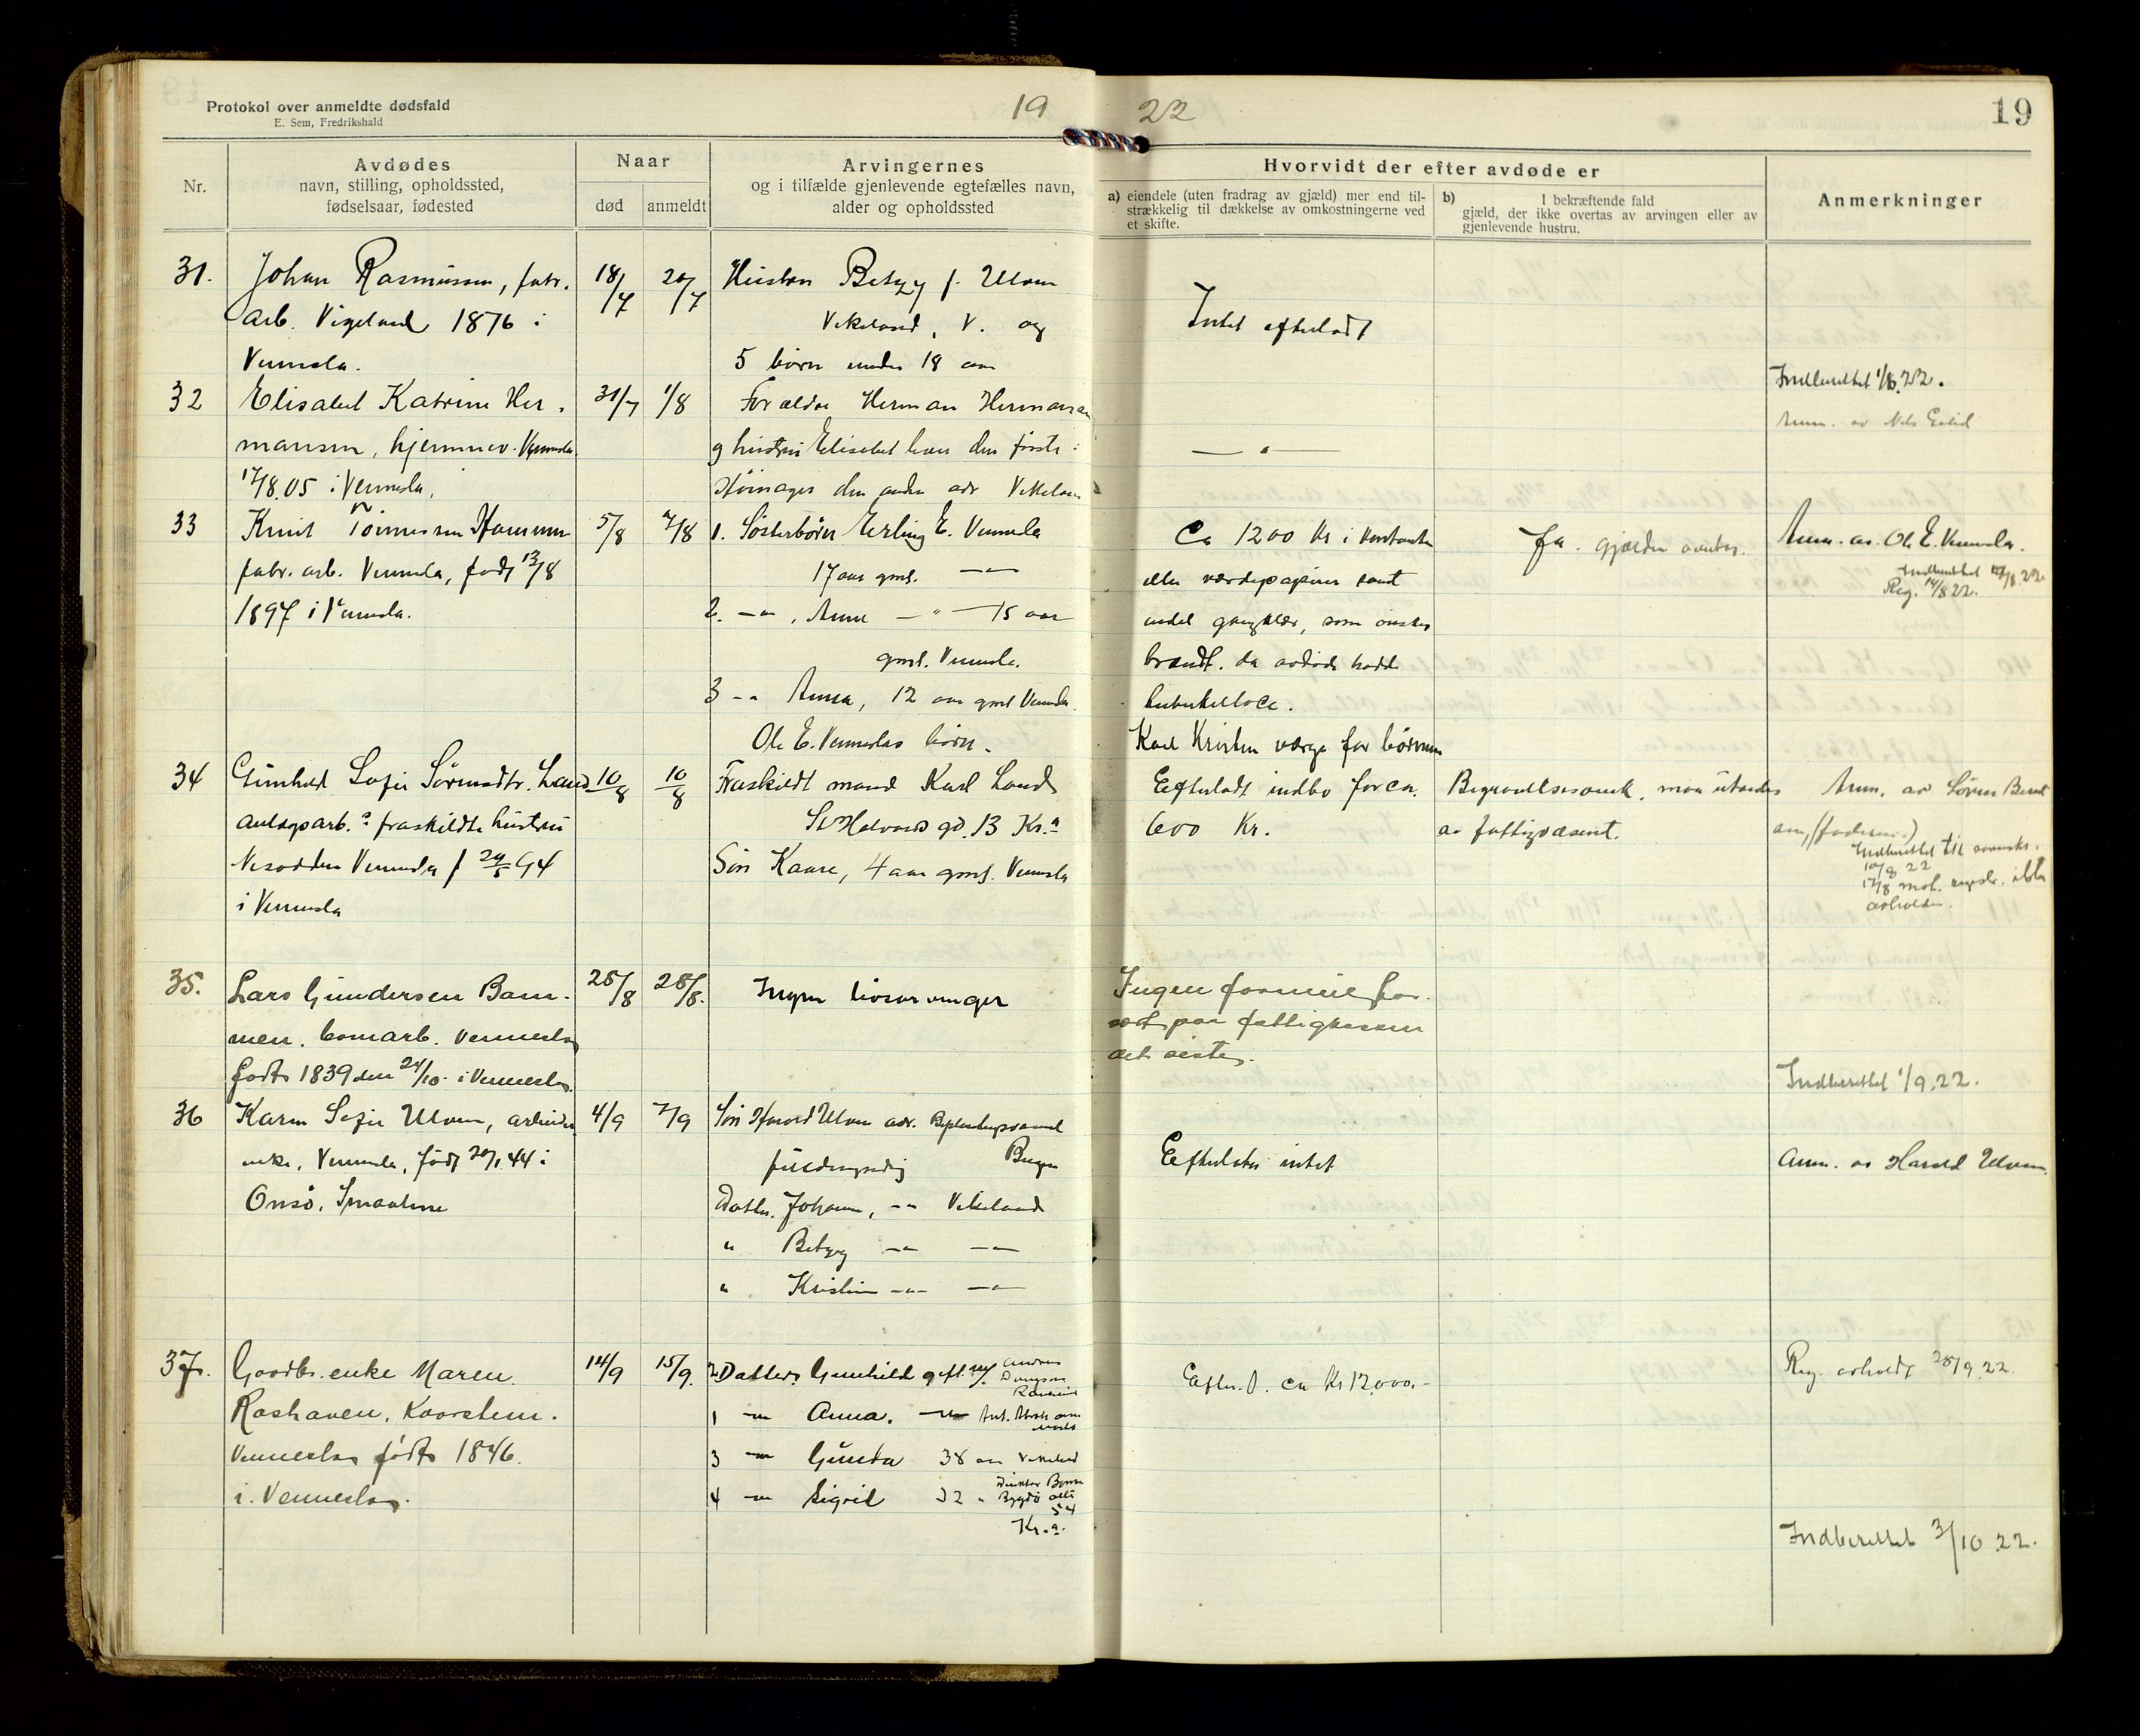 Protokol over anmeldte dødsfald
E. Sem, Fredrikshald
19 22
19
Nr.
Avdødes
navn, stilling, opholdssted,
fødselsaar, fødested
Naar
død
anmeldt
Arvingernes
og i tilfælde gjenlevende egtefælles navn,
alder og opholdssted
Hvorvidt der efter avdøde er
a) eiendele (uten fradrag av gjæld) mer end til-
strækkelig til dækkelse av omkostningerne ved
et skifte.
b) I bekræftende fald
gjæld, der ikke overtas av arvingen eller av
gjenlevende hustru.
Anmerkninger
31.
Johan Rasmussen, fabr.
arb. Vigeland 1876 i
Vennesla.
18/7
20/7
Hustru Betzy f. Ulven
Vikeland, V. og
5 börn under 18 aar
Intet efterladt
Indberettet 1/8.22.
32
Elisabet Katrine Her-
mansen, hjemmev. Vennesla
17/8.05 i Vennesla.
31/7
1/8
Forældre Herman Hermansen
og hustru Elisabet den første i
den anden adr Vikeland
— " —
Anm. av Nils
33
Knut Tönnessen Hammen
fabr. arb. Vennesla, født 13/8
1897 i Vennesla.
5/8
7/8
1. Søsterbörn Erling E. Vennesla
17 aar gml. —"—
2. —"— , Anne —"— 15 aar
gml. Vennesla.
3 —"— Anna, 12 aar gml Vennesla.
Ole E. Venneslas börn.
Ca 1200 Kr i kontanter
eller værdipapirer samt
endel gangklær, som ønskes
brændt, da avdøde hadde
tuberkellose.
Karl Kristen værge for börnene
Ja. gjælden overtas.
Anm. av. Ole E. Vennesla.
Indberettet 12/8.22
Reg. 14/8 22.
34
Gunhild Sofie Sörensdtr. Land
anlægsarb.s fraskildte hustru
Nesodden Vennesla f 29/5 94
i Vennesla
10/8
10/8
Fraskildt mand Karl Land
St Halvards gd. 13 Kr.a
Sön Kaare, 4 aar gml. Vennesla
Efterladt indbo for ca.
600 Kr.
Begravelsesomk. maa utredes
av fattigvæsenet.
Anm. av Søren Bernt
sen, (faderen)
Indberettet til
10/8 22
17/8 registr. ikke
avholdes.
35.
Lars Gundersen Bom-
men. bomarb. Vennesla
født 1839 den 24/10. i Vennesla
25/8
28/8.
Ingen livsarvinger
Ingen formue for-
sørt paa fattigkassen
det siste.
Indberettet 1/9.22.
36
Karen Sofie Ulven, arbeider
enke, Vennesla, født 20/1 44 i
Onsö, Smaalene
4/9
7/9
Sön Harald Ulven adr.
fuldmyndig Bergen
Datter. Johanne, —"— Vikeland
" Betzy —"— —"—
" Kristine —"— —"—
Efterlater intet
Anm. av Harald Ulven.
37.
Gaardbr. enke Maren
Roshaven, Kvarstein.
Vennesla født 1846.
i. Vennesla.
14/9
15/9.
2 Datter. Gunhild gift m/
1 —"— Anna. —"—
3 —"— Gunda 38 aar Vikeland
4 —"— Sigrid 32 "
Bygdö allé
54
Kr.a.
Efterl. ca Kr 12,000.-
Reg. avholdt 28/9.22.
Indberettet 3/10 22.